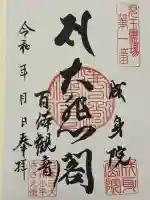 児玉霊場
第一番
成身院
大悲閣
百体観音
令和 年 月 日 奉拝